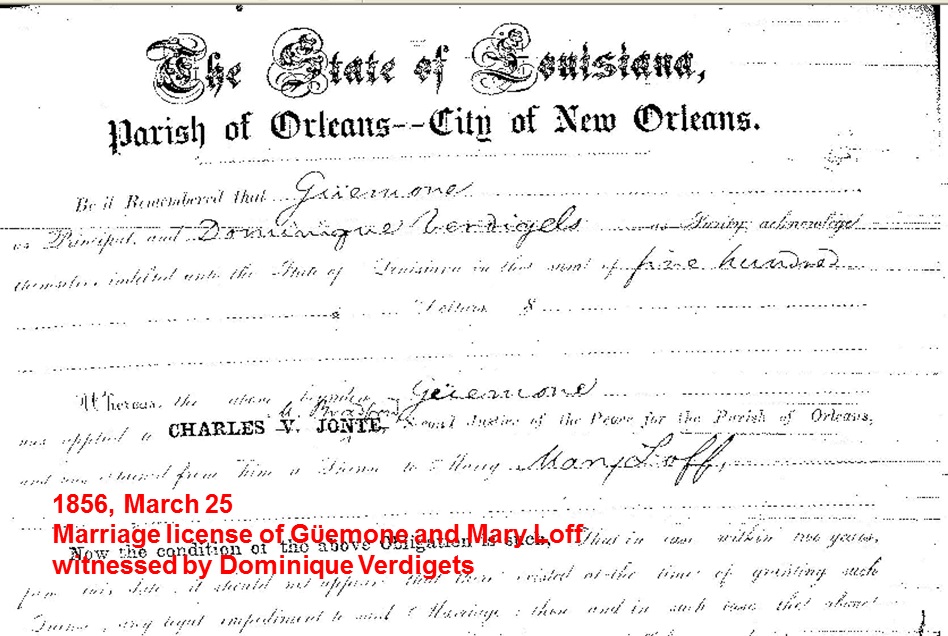 The State of Louisiana,
Parish of Orleans--City of New Orleans.
Be it Remembered that Güemone
as Principal, and Dominique Verdigels as Surety, acknowledge
themselves indebted unto the State of Louisiana in the sum of five hundred
Dollars $
Whereas, the above bounden Güemone
has applied to CHARLES V. JONTE, Second Justice of the Peace for the Parish of Orleans,
and has obtained from him a License to Marry Mary Loff,
1856, March 25
Marriage license of Güemone and Mary Loff
Now the condition of the above Obligation is such, That in case within two years,
witnessed by Dominique Verdigets
from this date, it should not appear that there existed at the time of granting such
License, any legal impediment to said Marriage; then and in such case the above